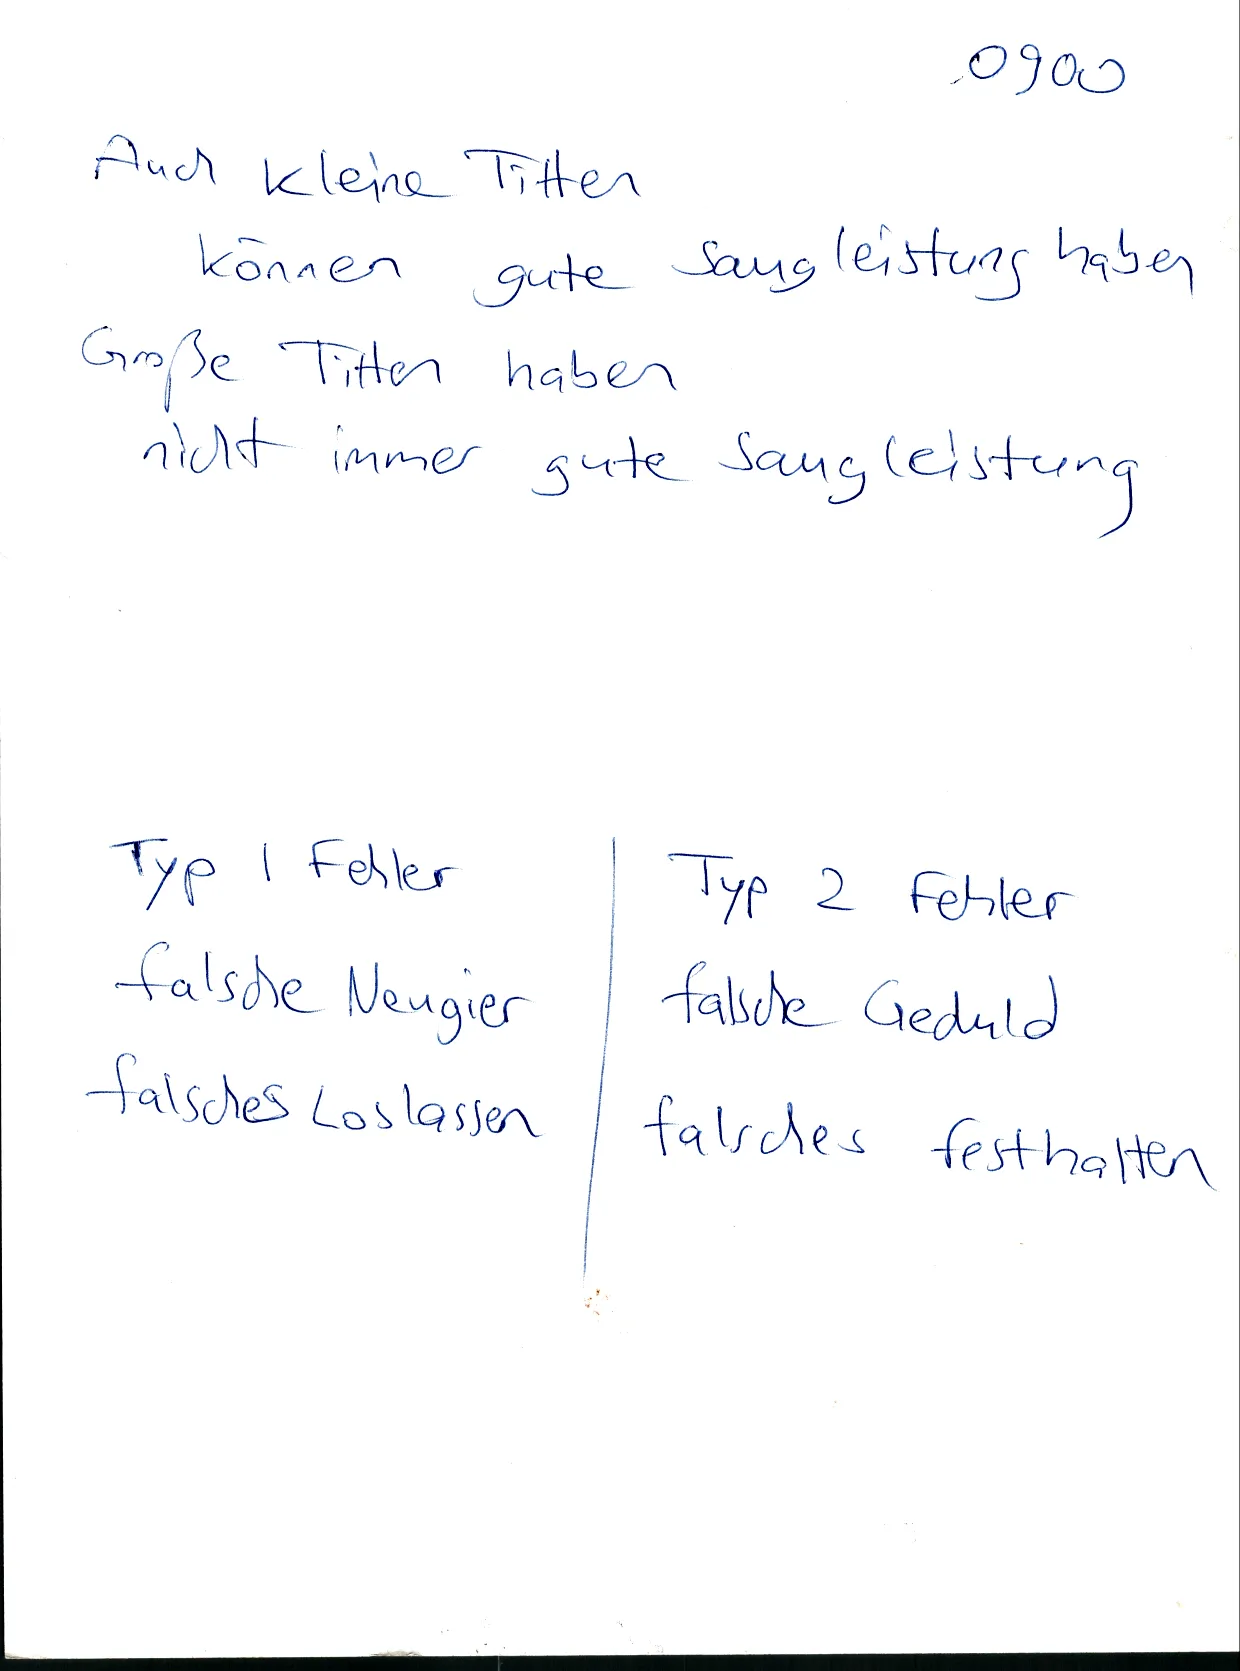 0900
Auch kleine Titten
können gute Saugleistung haben
Große Titten haben
nicht immer gute Saugleistung
Typ 1 Fehler
falsche Neugier
falsches Loslassen
Typ 2 Fehler
falsche Geduld
falsches festhalten